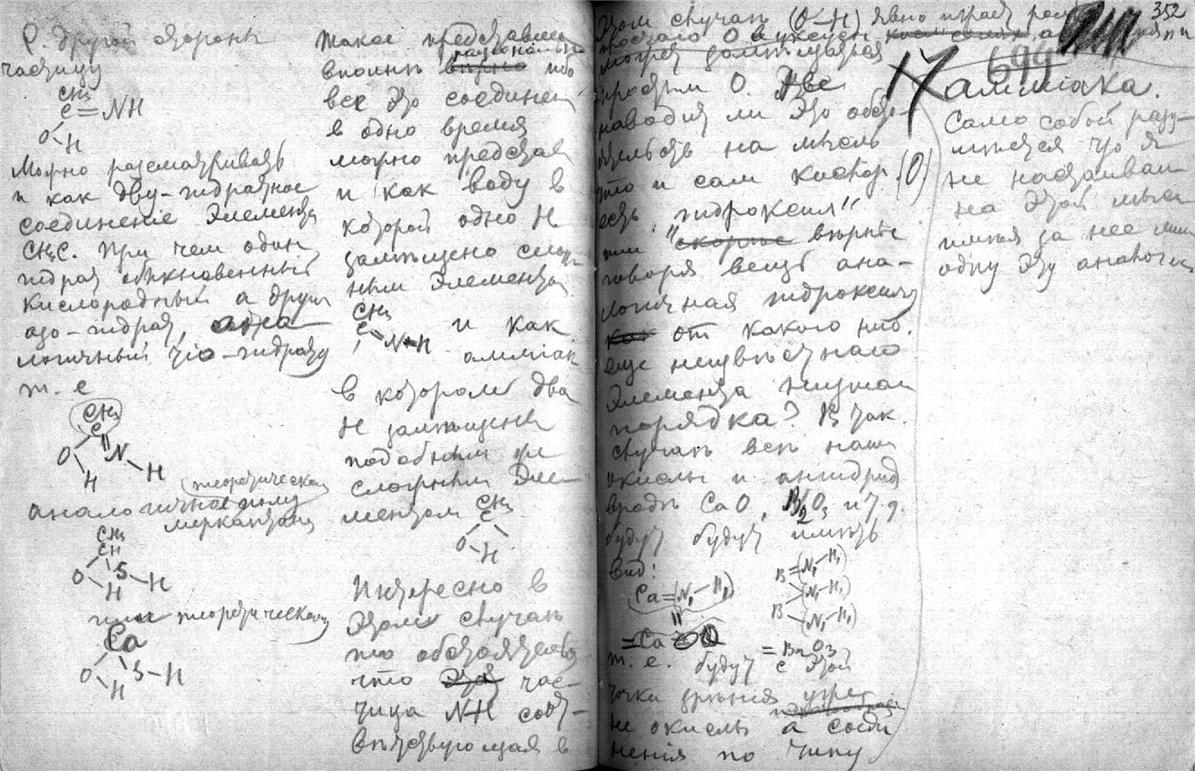 С другой стороны
частицу
CH3
C=NH
O H
Можно разсматривать
и как дву-гидратное
соединение элемента
CH3C. При чем один
гидрат обыкновенный
кислородный а другой
азо-гидрат, ана
логичный тио-гидрату
т. е
CH3
C
O N
H H
(теоретическая
аналогичное полу
меркаптану
CH3
CH
O S-H
H
или теоретическому
Ca
O S-H
H
такое представлен
рациональна
вполне верно ибо
все это соединен
в одно время
можно представ
и как воду в
которой одно H
замещено слож
ным элементом
CH3
C=N-H и как
аммиак
в котором два
H замещены
подобным же
сложным эле
ментом CH3
C
O H
Интересно в
этом случае
то обстоятельст
что эта час-
тица NH соот-
ветствующая в
этом случае (O-H) явно играет роль
O
может заместиться
простым O. Не
наводит ли это обсто-
ятельств на мысль
что и сам кислор. (O)
есть „гидроксил"
или „скорее верне
говоря вещь ана-
логичная гидроксилу
как от какого ниб.
еще неизвестнаго
элемента низшаго
порядка? В так.
случае все наши
окислы и ангидрид
вроде CaO, B2O3 и т. д.
будут будут иметь
вид:
Ca=(N,-H,)
=Ca OO
B=(N,-H,)
(N,-H,)
B-(N,-H,)
=B2O3
т. е. будут с этой
точки зрения уже
не окислы а соеди
нения по типу
352
699
17
аммиака.
Само собой разу-
меется что я
не настаиваю
на этой мысли
имея за нее лишь
одну эту аналогию